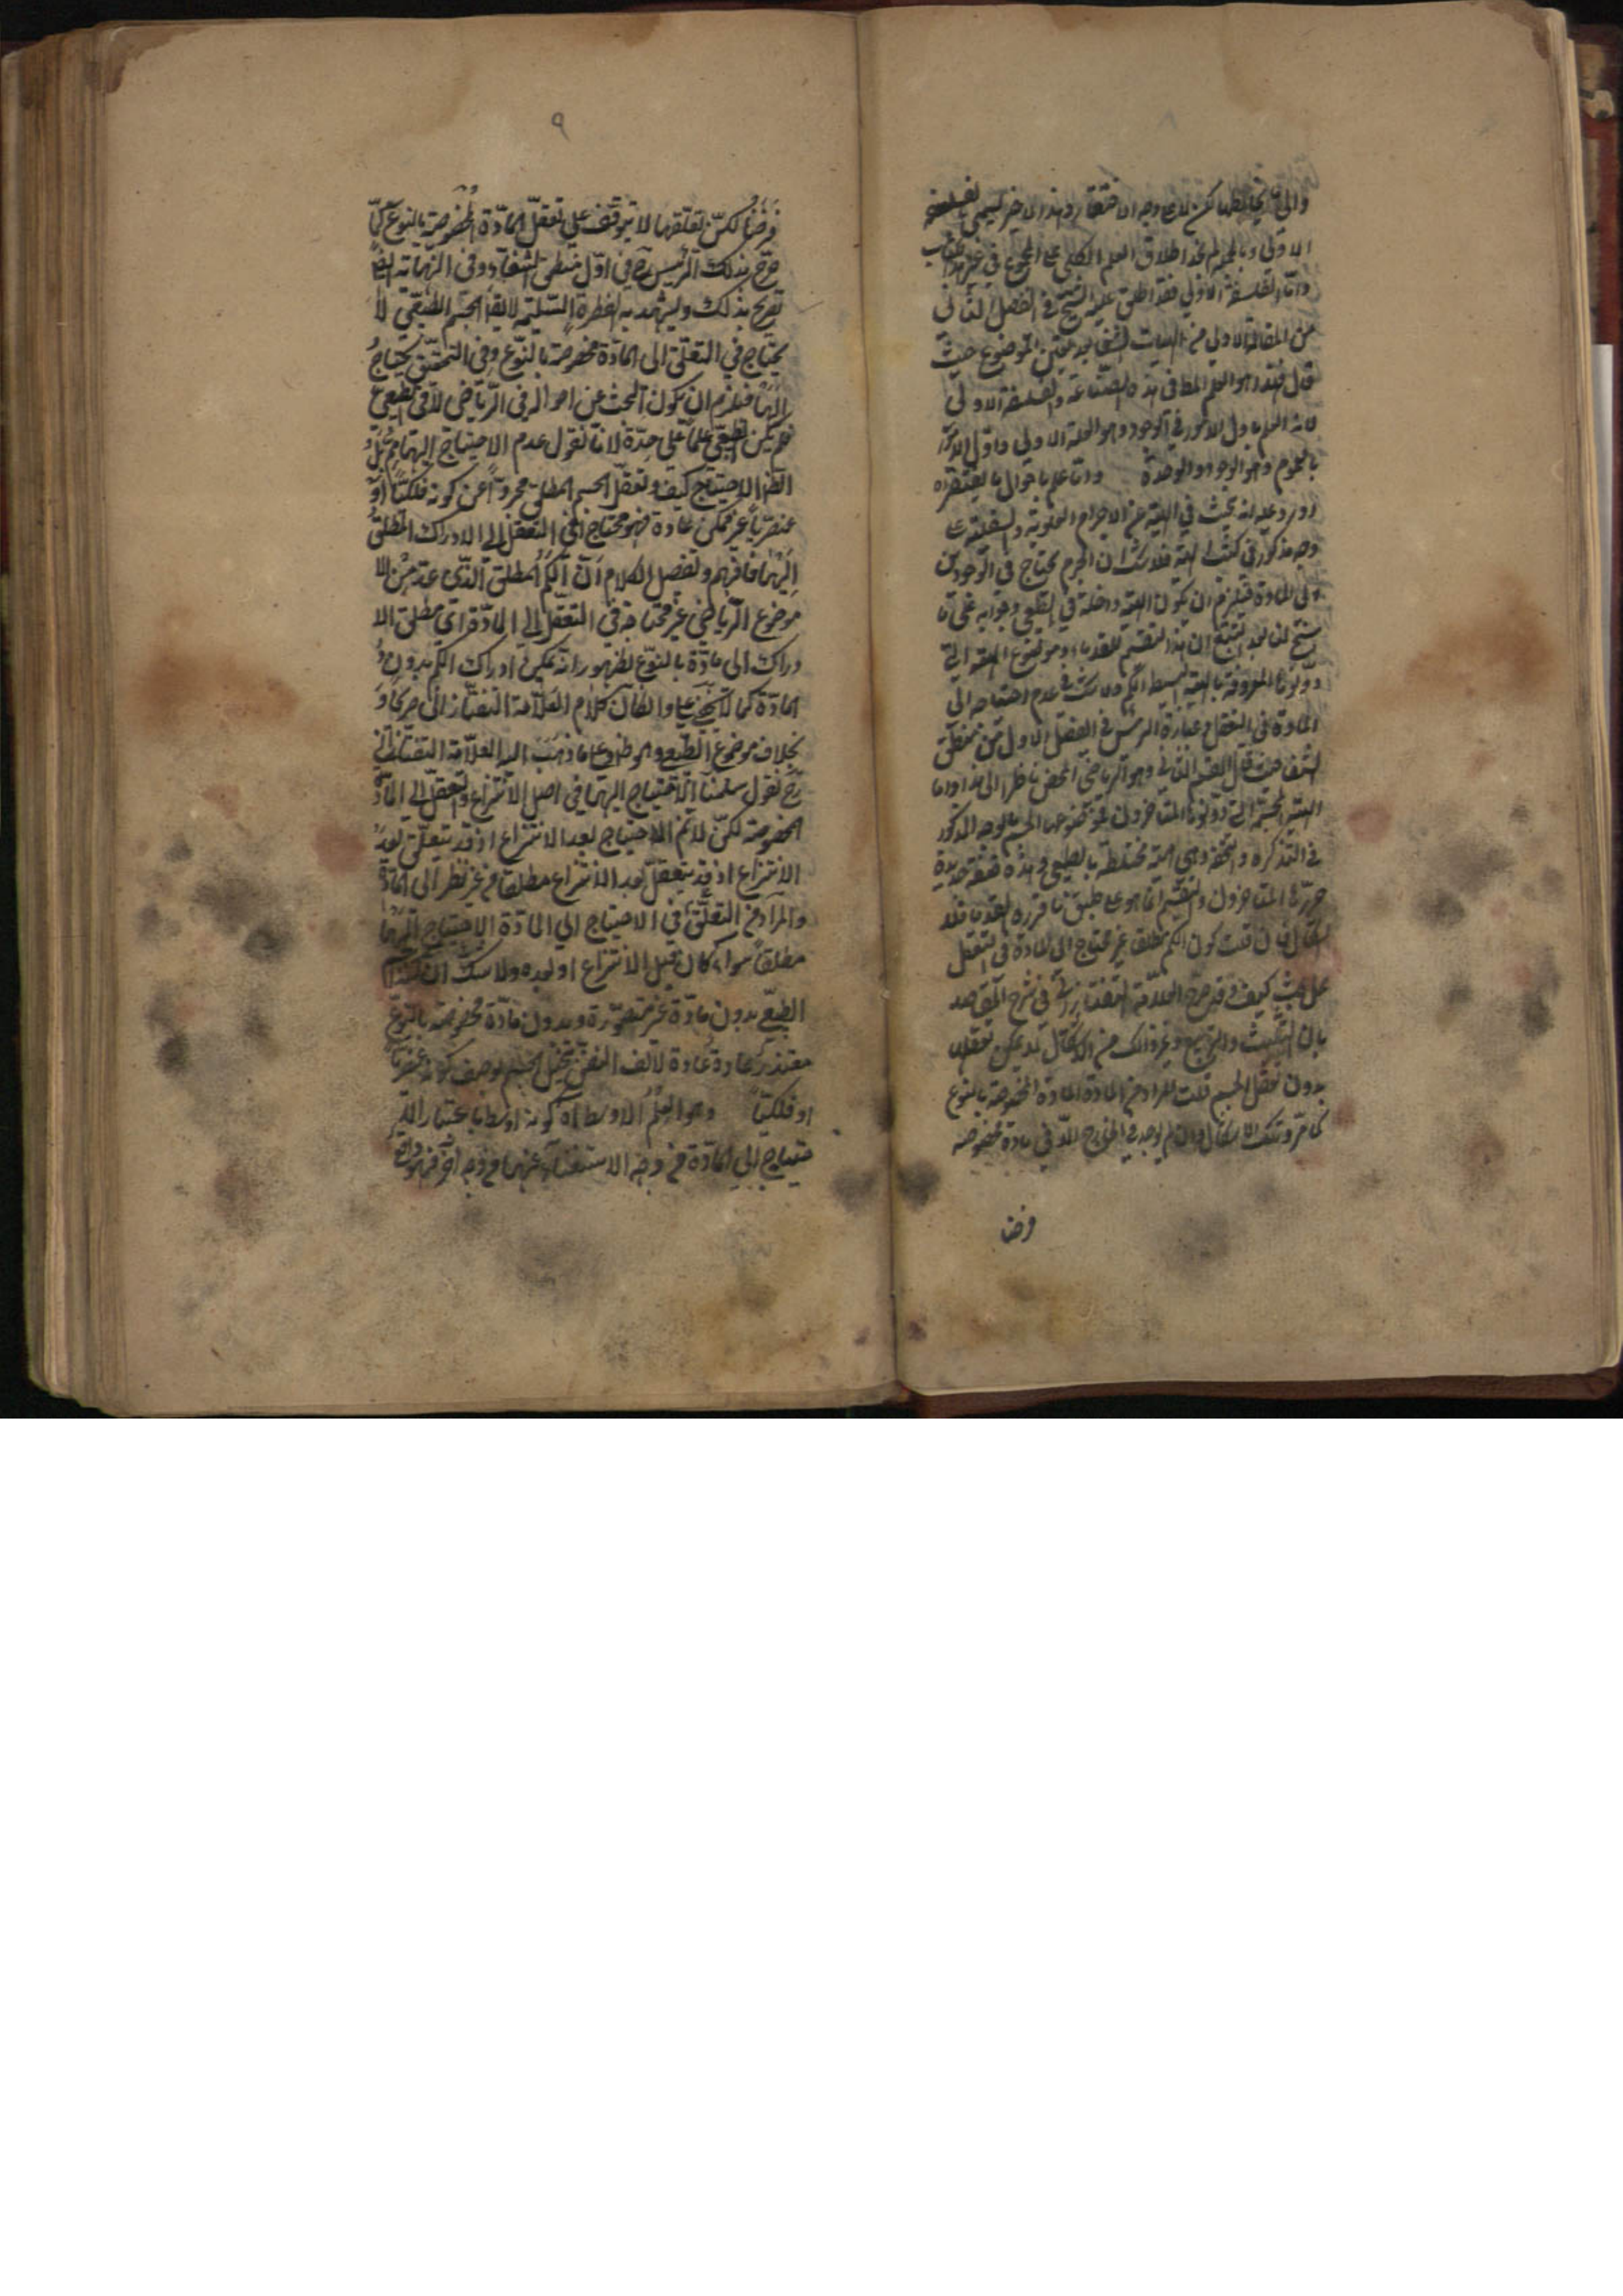 والى ما يخالطها لكن لا على وجه الافتقار وهذا الاخير يسمى بالفلسفة
الاولى وبالجملة لم نجد اطلاق العلم الكلي على المجموع في غير هذا الكتاب
واما الفلسفة الاولى فقد اطلق عليه الشيخ في الفصل الثاني
من المقالة الاولى من الهيات الشفا بعد تحقيق الموضوع حيث
قال فهذا هو العلم المط في هذه الصناعة والفلسفة الاولى
لانه العلم باول الامور في الوجود وهو العلة الاولى واول الامور
بالعموم وهو الوجود والوحدة واما علم باحوال ما يفتقر اه
اورد عليه انه يبحث في الهيئة عن الاجرام العلوية والسفلية على
وجه مذكور في كتب الهيئة فلا شك ان الجرم يحتاج في الوجودين
الى المادة فيلزم ان يكون الهيئة داخلة في الطبيعي وجوابه على ما
سنح لى بعد التتبع ان هذا التقسيم للقدماء وموضوع الهيئة التي
دونوها المعروفة بالهيئة البسيطة الكم ولا شك في عدم احتياجه الى
المادة في التعقل وعبارة الرئيس في الفصل الاول من منطق
الشفا حيث قال القسم الثاني وهو الرياضي المحض ناظر الى هذا واما
الهيئة المجسمة التي دونوها المتاخرون فموضوعها الجسم بالوجه المذكور
في التذكره والتحفة وهي هيئة مختلطة بالطبيعي وهذه صنعة جديدة
حررها المتاخرون والتقسيم انما هو على طبق ما قرره القدماء فلا
اشكال فان قلت كون الكم مطلقا غير محتاج الى المادة في التعقل
محل بحث كيف وقد صرح العلامة التفتازاني في شرح المقاصد
بان التثليث والتربيع وغير ذلك من الاشكال لا يمكن تعقلها
بدون تعقل الجسم قلت المراد من المادة المادة المخصوصة بالنوع
كما مر وتلك الاشكال وان لم يوجد في الخارج الا في مادة مخصوصة
فرضا
٩
فرضا لكن تعلقها لا يتوقف على تعقل المادة المخصوصة بالنوع كما
صرح بذلك الرئيس في اول منطق الشفاء وفي الهياته ايضا
تصريح بذلك ويشهد به الفطرة السليمة لا يقا الجسم الطبيعي لا
يحتاج في التعقل الى المادة مخصوصة بالنوع وفي التحقق يحتاج
اليها فيلزم ان يكون البحث عن احواله في الرياضي لا في الطبيعي
فلم يكن الطبيعي علما على حدة لانا نقول عدم الاحتياج اليها مم بل
الظ الاحتياج كيف وتعقل الجسم المطلق مجردا عن كونه فلكيا او
عنصريا غير ممكن عادة فهو محتاج في التعقل الى الادراك المطلق
اليها فافهم وتفصيل الكلام ان الكم المطلق الذي عد من
موضوع الرياضي غير محتاجة في التعقل الى المادة اي مطلق الا
دراك الى مادة بالنوع لظهور انه يمكن ادراك الكم بدون
المادة كما لا يخفى وان كان كلام العلامة التفتازاني
بخلاف موضوع الطبيعي وهو ظ وعلى ما ذهب اليه العلامة التفتازاني
رح نقول سلمنا الاحتياج اليها في اصل الانتزاع والتعقل الى المادة
المخصوصة لكن لا نم الاحتياج بعد الانتزاع اذ قد يتعلق بعد
الانتزاع اذ قد يتعقل بعد الانتزاع مطلقا من غير نظر الى المادة
والمراد من التعلق في الاحتياج الى المادة الاحتياج اليها
مطلقا سواء كان قبل الانتزاع او بعده ولا شك ان
الطبيعي بدون مادة غير متصورة وبدون مادة مخصوصة بالنوع
متعذر عادة لالف النفس بتخيل الجسم بوصف كونه عنصريا
او فلكيا وهو العلم الاوسط اه كونه اوسط باعتبار الا
حتياج الى المادة من وجه الاستغناء عنها من وجه آخر فهو واقع